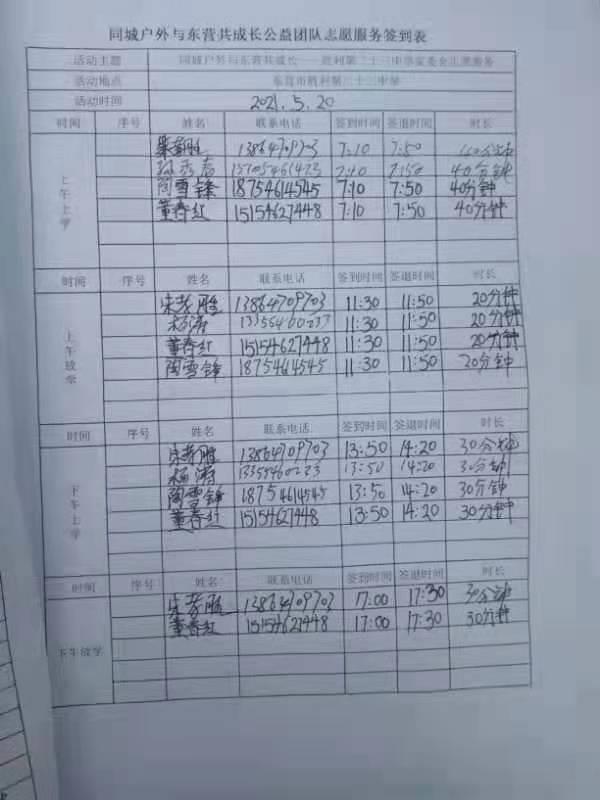 同城户外与东营共成长公益团队志愿服务签到表
活动主题 同城户外与东营共成长——胜利第二十三中学家委会志愿服务
活动地点 东营市胜利第二十三中学
活动时间 2021.5.20
时间 序号 姓名 联系电话 签到时间 签退时间 时长
上午上学
13864709703 7:10 7:50 40分钟
7:10 7:50 40分钟
陶雪锋 18754614545 7:10 7:50 40分钟
董春红 15154627448 7:10 7:50 40分钟
时间 序号 姓名 联系电话 签到时间 签退时间 时长
上午放学
宋孝胜 13864709703 11:30 11:50 20分钟
杨涛 13355460233 11:30 11:50 20分钟
董春红 15154627448 11:30 11:50 20分钟
陶雪锋 1875464545 11:30 11:50 20分钟
时间 序号 姓名 联系电话 签到时间 签退时间 时长
下午上学
宋孝胜 13864709703 13:50 14:20 30分钟
杨涛 13:50 14:20 30分钟
陶雪锋 18754614545 13:50 14:20 30分钟
董春红 15154627448 13:50 14:20 30分钟
时间 序号 姓名 联系电话 签到时间 签退时间 时长
下午放学
宋孝胜 13864709703 17:00 17:30 30分钟
董春红 15154627448 17:00 17:30 30分钟